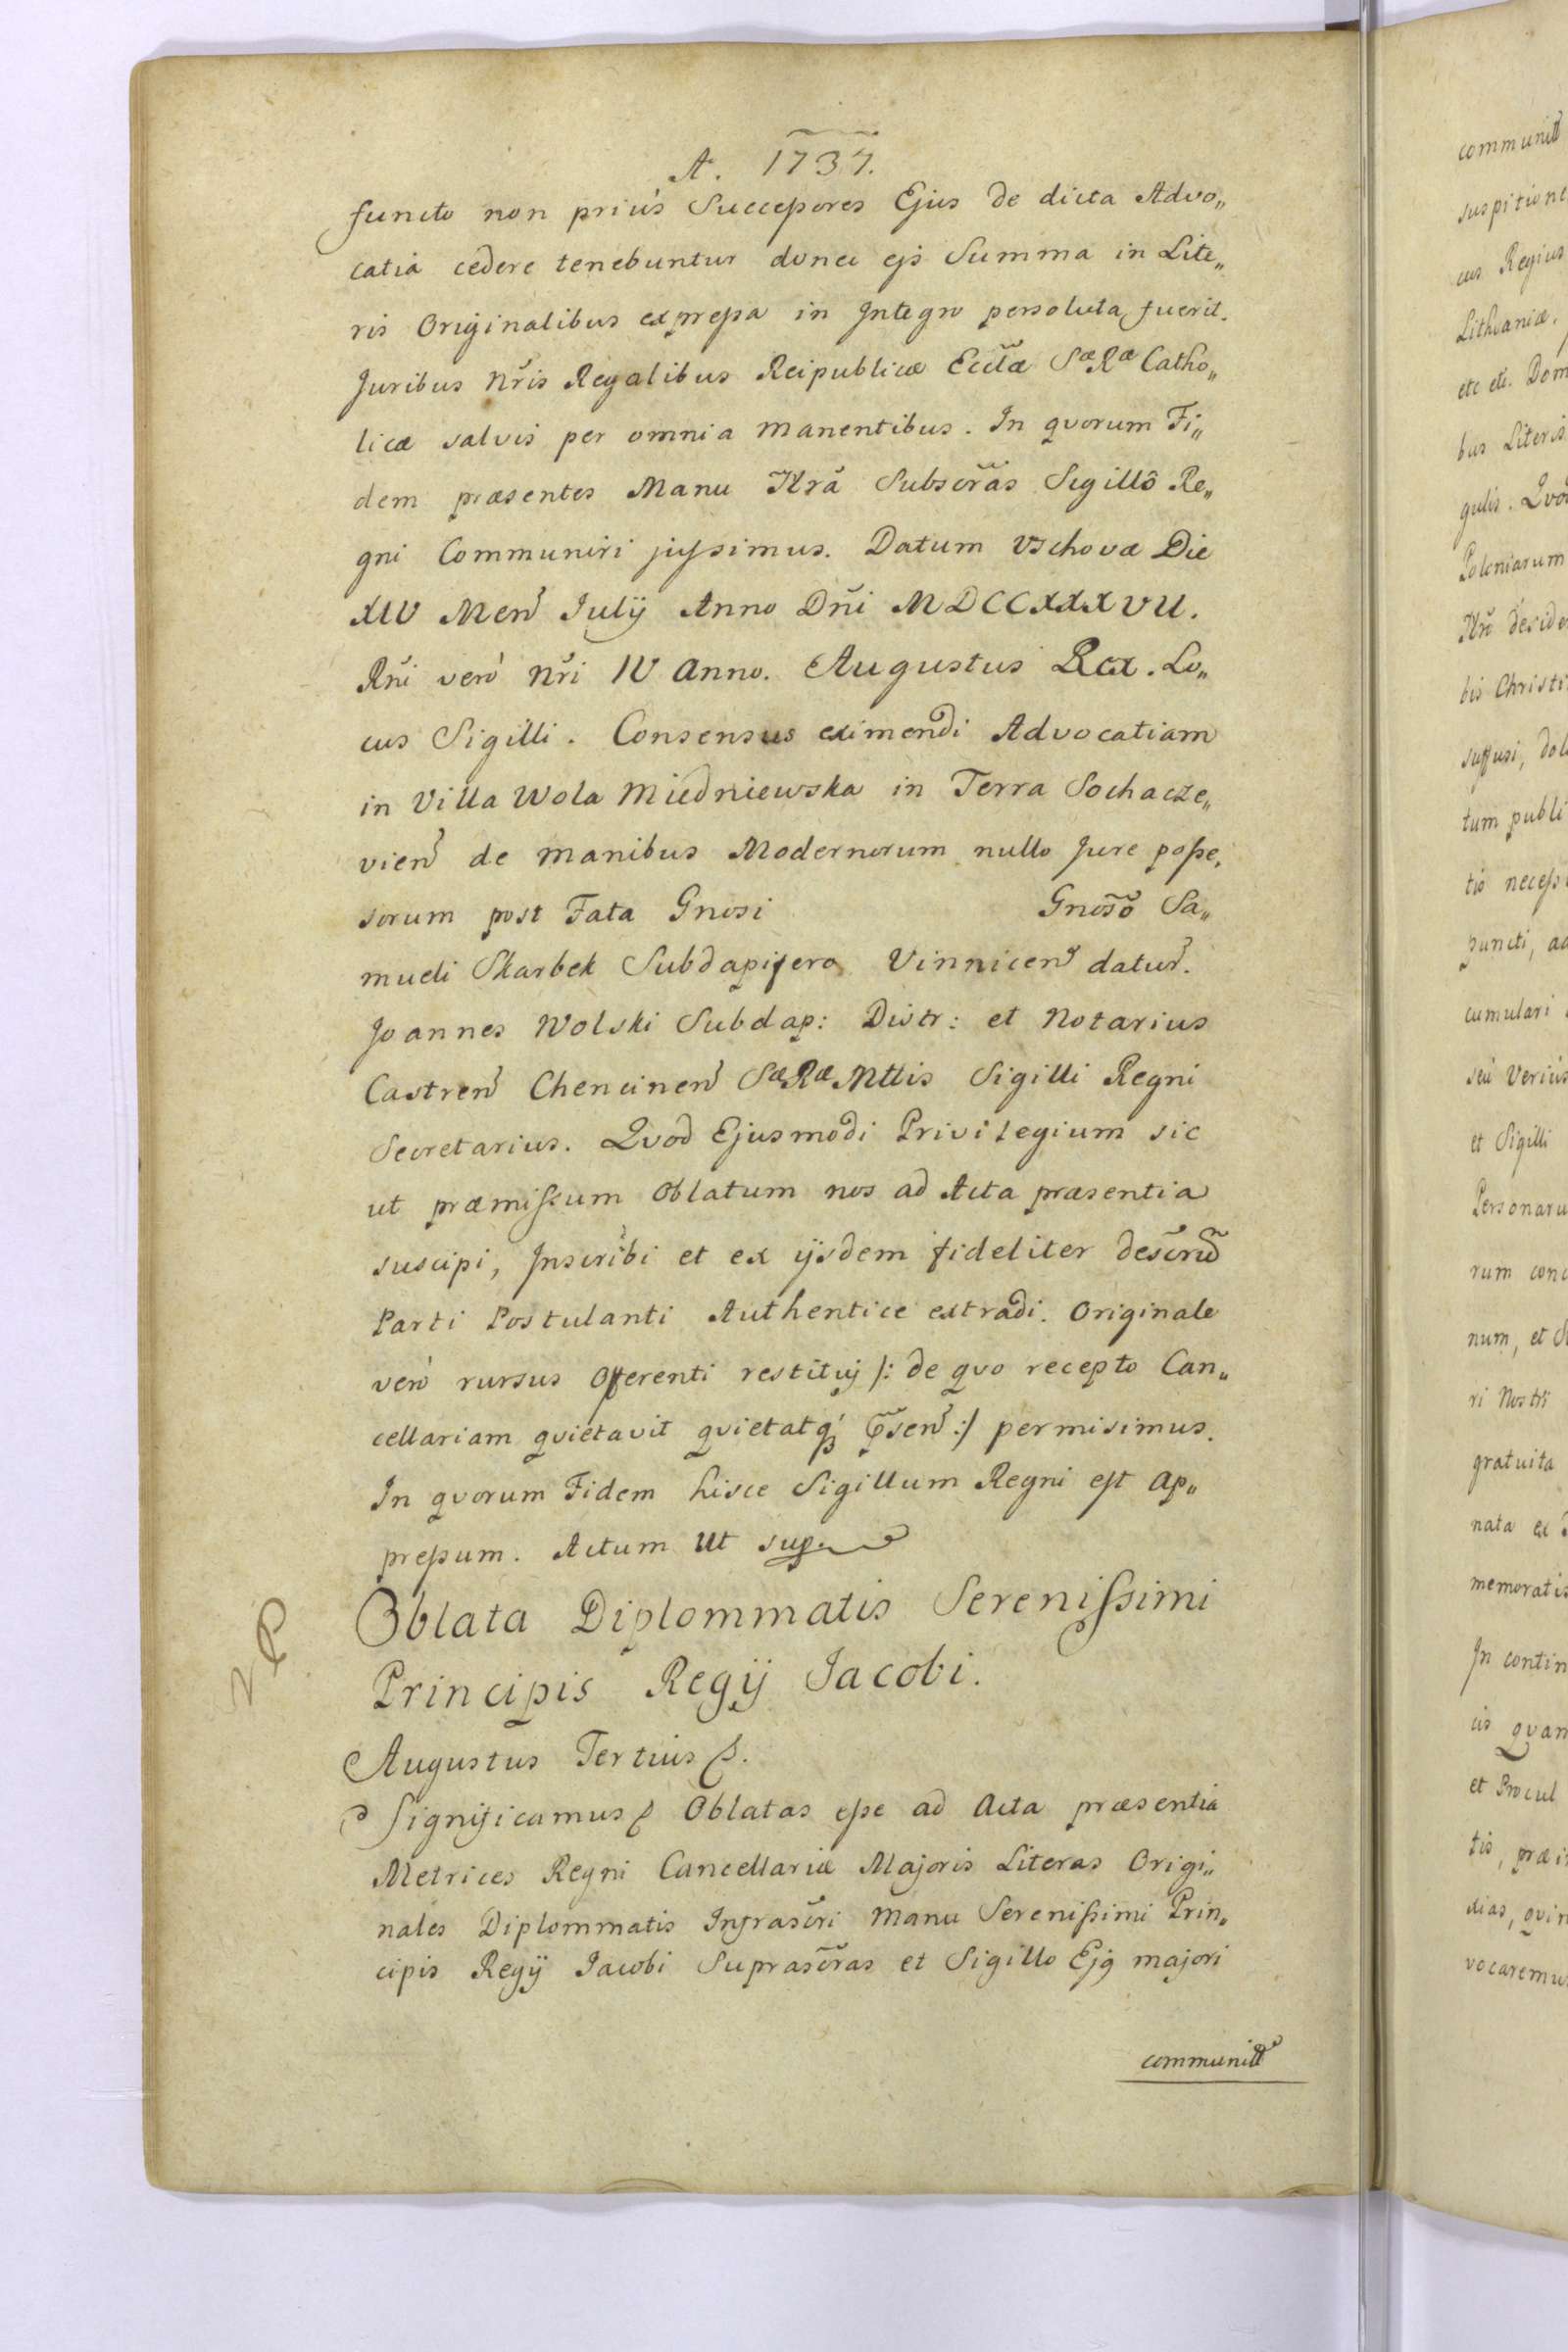 A. 1737.
functo non priùs Successores Ejus de dicta Advo„
catia cedere tenebuntur donec ejs Summa in Lite„
ris Originalibus expressa in Integro persoluta fuerit.
Juribus Nr̃is Regalibus Reipublicæ Eccl̃æ SæRæ Catho„
licæ salvis per omnia manentibus. In qvorum Fi„
dem præsentes Manu Nr̃a Subscr̃as Sigillô Re„
gni Communiri jussimus. Datum Vschovæ Die
XIV Men̄ Julÿ Anno Dñi MDCCXXXVII.
Rñi verò Nr̃i IV Anno. Augustus Rex. Lo„
cus Sigilli. Consensus eximendi Advocatiam
in Villa Wola Miedniewska in Terra Sochacze„
vien̄ de manibus Modernorum nullo Jure posse„
sorum post Fata Gnosi Gnosõ Sa„
mueli Skarbek Subdapifero Vinnicen̄ datur̄.
Joannes Wolski Subdap: Distr: et Notarius
Castren̄ Chencinen̄ SæRæ Mttis Sigilli Regni
Secretarius. Qvod Ejusmodi Privilegium sic
ut præmissum Oblatum nos ad Acta præsentia
suscipi, Inscribi et ex ijsdem fideliter descr̃w̃
Parti Postulanti Authentice extradi. Originale
verò rursus Offerenti restituj /: de qvo recepto Can„
cellariam qvietavit qvietatq; p̃sen̄ :/ permisimus.
In qvorum Fidem hisce Sigillum Regni est ap„
pressum. Actum ut sup.
NP
Oblata Diplommatis Serenissimi
Principis Regÿ Jacobi.
Augustus Tertius &.
Significamus & Oblatas esse ad Acta præsentia
Metrices Regni Cancellariæ Majoris Literas Origi„
nales Diplommatis Infrascr̃i Manu Serenissimi Prin„
cipis Regÿ Jacobi Suprascr̃as et Sigillo Ejq majori
communitt̄
communitt̄
suspitione
cus Regius
Lithvaniæ.
etc etc. Dom
bus Literis
gulis. Qvod
Poloniarum
Nr̃o deside
bis Christi
suffusi, dol
tum publi
tiò necess
puncti, ad
cumulari
seù Veriùs
et Sigilli
Personaru
rum conc
num, et S
ri Nostri
gratuita
nata ex
memoratis
In contin
iis qvan
et Procul
tis, præ
dias, qvin
vocaremus